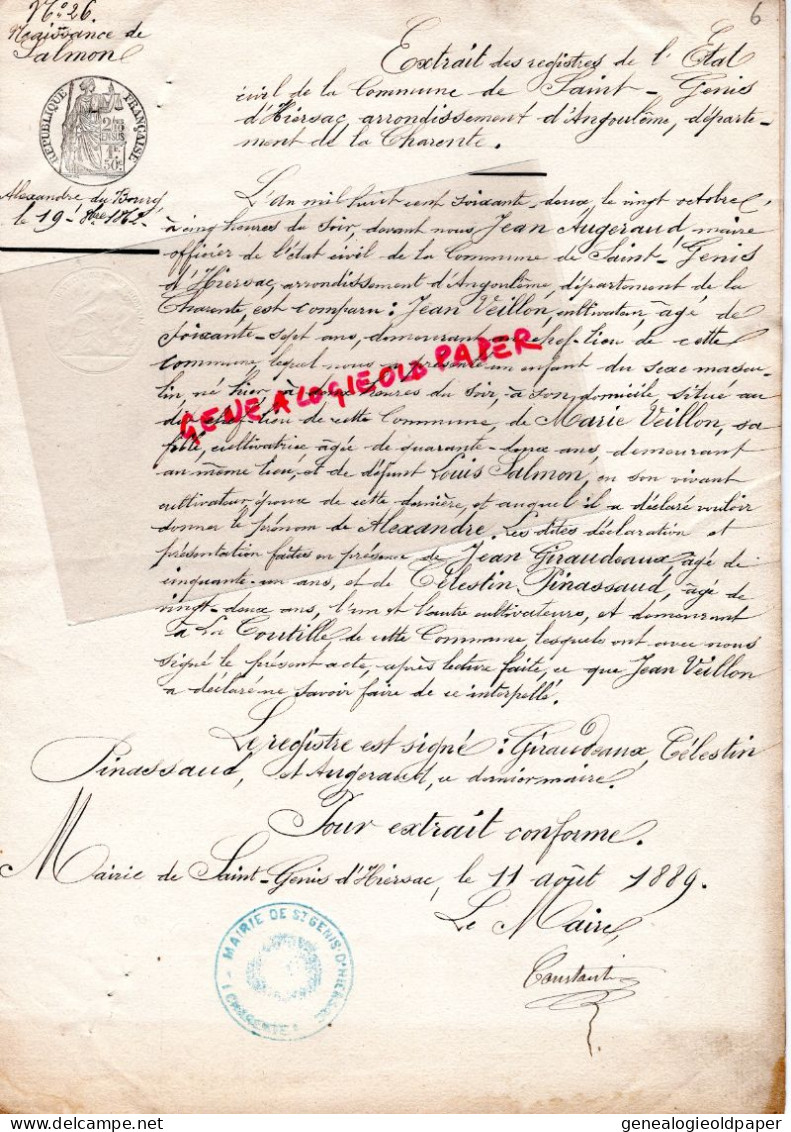 N.º 26.
Naissance de
Salmon
6
RÉPUBLIQUE FRANÇAISE
Alexandre du Bourg
le 19 8bre 1862.
Extrait des registres de l'Etat
civil de la Commune de Saint-Genis
d'Hiersac, arrondissement d'Angoulême, départe-
ment de la Charente.
L'an mil huit cent soixante deux, le vingt octobre,
à cinq heures du soir, devant nous, Jean Augeraud, maire
officier de l'état civil de la Commune de Saint-Genis
d'Hiersac, arrondissement d'Angoulême, département de la
Charente, est comparu: Jean Veillon, cultivateur, âgé de
soixante-sept ans, demeurant chef-lieu de cette
commune, lequel nous a présenté un enfant du sexe mascu-
lin, né hier à heures du soir, à son domicile, situé au
dit chef-lieu de cette Commune, de Marie Veillon, sa
fille, cultivatrice, âgée de quarante-deux ans, demeurant
au même lieu, et de défunt Louis Salmon, en son vivant
cultivateur, époux de cette dernière, et auquel il a déclaré vouloir
donner le prénom de Alexandre. Les dites déclaration et
présentation faites en présence de Jean Giraudeaux, âgé de
cinquante-un ans, et de Célestin Pinassaud, âgé de
vingt-deux ans, l'un et l'autre cultivateurs, et demeurant
à La Coutille de cette Commune, lesquels ont avec nous
signé le présent acte, après lecture faite, ce que Jean Veillon
a déclaré ne savoir faire de ce interpellé.
Le registre est signé: Giraudeaux, Célestin
Pinassaud, et Augeraud, ce dernier maire.
Pour extrait conforme.
Mairie de Saint-Genis d'Hiersac, le 11 août 1889.
Le Maire,
Constantin
MAIRIE DE ST GENIS-D'HIERSAC
(CHARENTE)
GENEALOGIEOLD PAPER
genealogieoldpaper